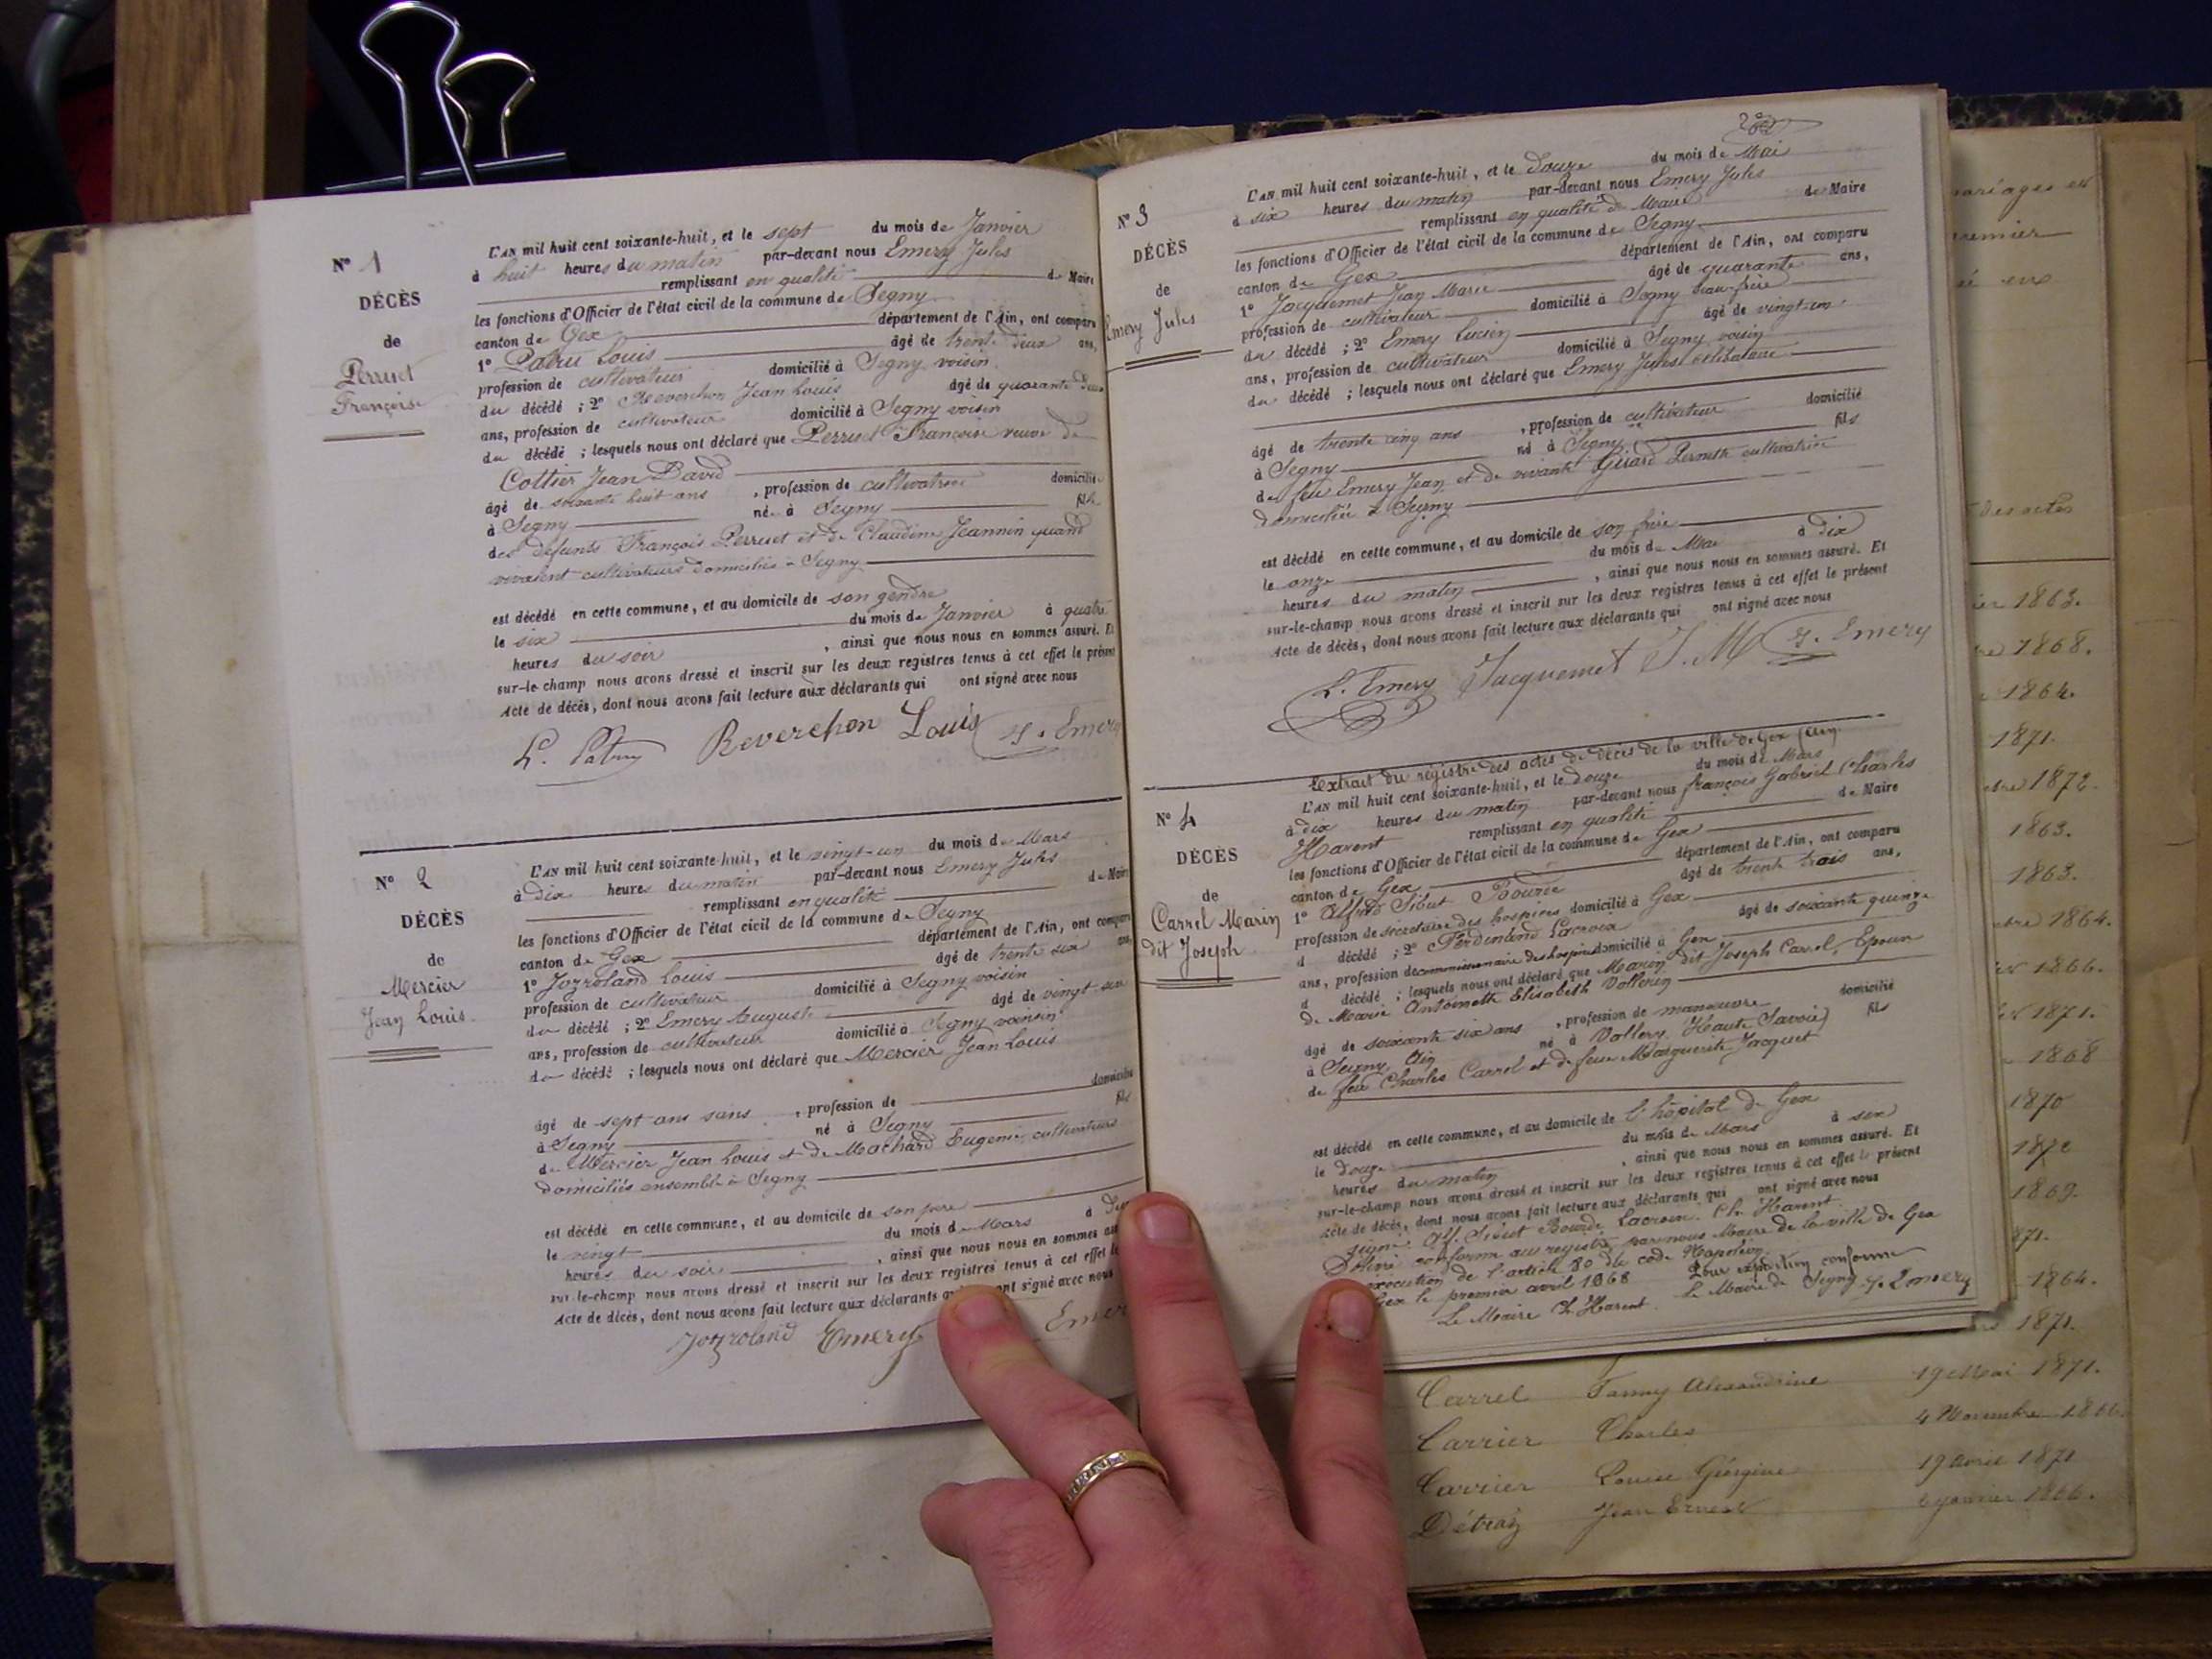 N° 1
DÉCÈS
de
Perruet
Françoise
L'AN mil huit cent soixante-huit, et le sept du mois de Janvier
à huit heures du matin par-devant nous Emery Jules
remplissant en qualité de Maire
les fonctions d'Officier de l'état civil de la commune de Segny
canton de Gex département de l'Ain, ont comparu
1° Patru Louis âgé de trente deux ans,
profession de cultivateur domicilié à Segny voisin
du décédé ; 2° Reverchon Jean Louis âgé de quarante deux
ans, profession de cultivateur domicilié à Segny voisin
du décédé ; lesquels nous ont déclaré que Perruet Françoise veuve de
Cottier Jean David
âgé de soixante huit ans , profession de cultivatrice domicilié
à Segny né à Segny fille
des défunts François Perruet et de Claudine Jeannin quand
vivaient cultivateurs domiciliés à Segny
est décédé en cette commune, et au domicile de son gendre
le six du mois de Janvier à quatre
heures du soir , ainsi que nous nous en sommes assuré. Et
sur-le-champ nous avons dressé et inscrit sur les deux registres tenus à cet effet le présent
Acte de décès, dont nous avons fait lecture aux déclarants qui ont signé avec nous
L. Patru Reverchon Louis J. Emery
N° 2
DÉCÈS
de
Mercier
Jean Louis
L'AN mil huit cent soixante-huit, et le vingt-un du mois de Mars
à dix heures du matin par-devant nous Emery Jules
remplissant en qualité de Maire
les fonctions d'Officier de l'état civil de la commune de Segny
canton de Gex département de l'Ain, ont comparu
1° Jozroland Louis âgé de trente six ans,
profession de cultivateur domicilié à Segny voisin
du décédé ; 2° Emery Auguste âgé de vingt-six
ans, profession de cultivateur domicilié à Segny voisin
du décédé ; lesquels nous ont déclaré que Mercier Jean Louis
âgé de sept ans sans , profession de domicilié
à Segny né à Segny fils
de Mercier Jean Louis et de Machard Eugenie cultivateurs
domiciliés ensemble à Segny
est décédé en cette commune, et au domicile de son père
le vingt du mois de Mars à
heures du soir , ainsi que nous nous en sommes
sur-le-champ nous avons dressé et inscrit sur les deux registres tenus à cet effet le
Acte de décès, dont nous avons fait lecture aux déclarants ont signé avec nous
Jozroland Emery Emery
N° 3
DÉCÈS
de
Emery Jules
L'AN mil huit cent soixante-huit, et le douze du mois de Mai
à six heures du matin par-devant nous Emery Jules
remplissant en qualité de Maire de Maire
les fonctions d'Officier de l'état civil de la commune de Segny
canton de Gex département de l'Ain, ont comparu
1° Jacquemet Jean Marie âgé de quarante ans,
profession de cultivateur domicilié à Segny beau-frère
du décédé ; 2° Emery Lucien âgé de vingt-un
ans, profession de cultivateur domicilié à Segny voisin
du décédé ; lesquels nous ont déclaré que Emery Jules célibataire
âgé de trente cinq ans , profession de cultivateur domicilié
à Segny né à Segny fils
de feu Emery Jean et de vivante Girard Pernette cultivatrice
domiciliée à Segny
est décédé en cette commune, et au domicile de son frère
le onze du mois de Mai à dix
heures du matin , ainsi que nous nous en sommes assuré. Et
sur-le-champ nous avons dressé et inscrit sur les deux registres tenus à cet effet le présent
Acte de décès, dont nous avons fait lecture aux déclarants qui ont signé avec nous
L. Emery Jacquemet J. M J. Emery
N° 4
DÉCÈS
de
Carrel Marin
dit Joseph
Extrait du registre des actes de décès de la ville de Gex (Ain)
L'AN mil huit cent soixante-huit, et le douze du mois de Mars
à dix heures du matin par-devant nous françois Gabriel Charles
Harent remplissant en qualité de Maire
les fonctions d'Officier de l'état civil de la commune de Gex
canton de Gex département de l'Ain, ont comparu
1° Alfred Sibut Bourde âgé de trente trois ans,
profession de secrétaire des hospices domicilié à Gex
d décédé ; 2° Ferdinand Lacroix âgé de soixante quinze
ans, profession de commissionnaire des hospices domicilié à Gex
d décédé ; lesquels nous ont déclaré que Marin dit Joseph Carrel, Epoux
de Marie Antoinette Elisabeth Dollerin
âgé de soixante six ans , profession de manœuvre domicilié
à Segny Ain né à Vallery (Haute Savoie) fils
de feu Charles Carrel et de feue Marguerite Jacquet
est décédé en cette commune, et au domicile de l'hôpital de Gex
le douze du mois de Mars à six
heures du matin , ainsi que nous nous en sommes assuré. Et
sur-le-champ nous avons dressé et inscrit sur les deux registres tenus à cet effet le présent
Acte de décès, dont nous avons fait lecture aux déclarants qui ont signé avec nous
signé: Alf. Sibut Bourde, Lacroix. Ch. Harent
Délivré conforme au registre par nous Maire de la ville de Gex
exécution de l'article 80 du code Napoléon.
Gex le premier avril 1868 Pour expédition conforme
Le Maire Ch. Harent. Le Maire de Segny J. Emery
mariages et
premier
des actes
1863.
1868.
1864.
1871.
1872.
1863.
1863.
1864.
1866.
1871.
1868
1870
1872
1869.
871.
1864.
1871.
Carrel Fanny Alexandrine 19 Mai 1871.
Carrier Charles 4 Novembre 1866.
Carrier Louise Géorgine 19 avril 1871
Détraz Jean Ernest 6 janvier 1866.